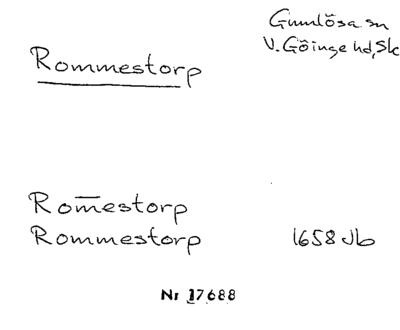 Gumlösa sn
V. Göinge hd, Sk
Rommestorp
Rom̅estorp
Rommestorp 1658 Jb
Nr 17688